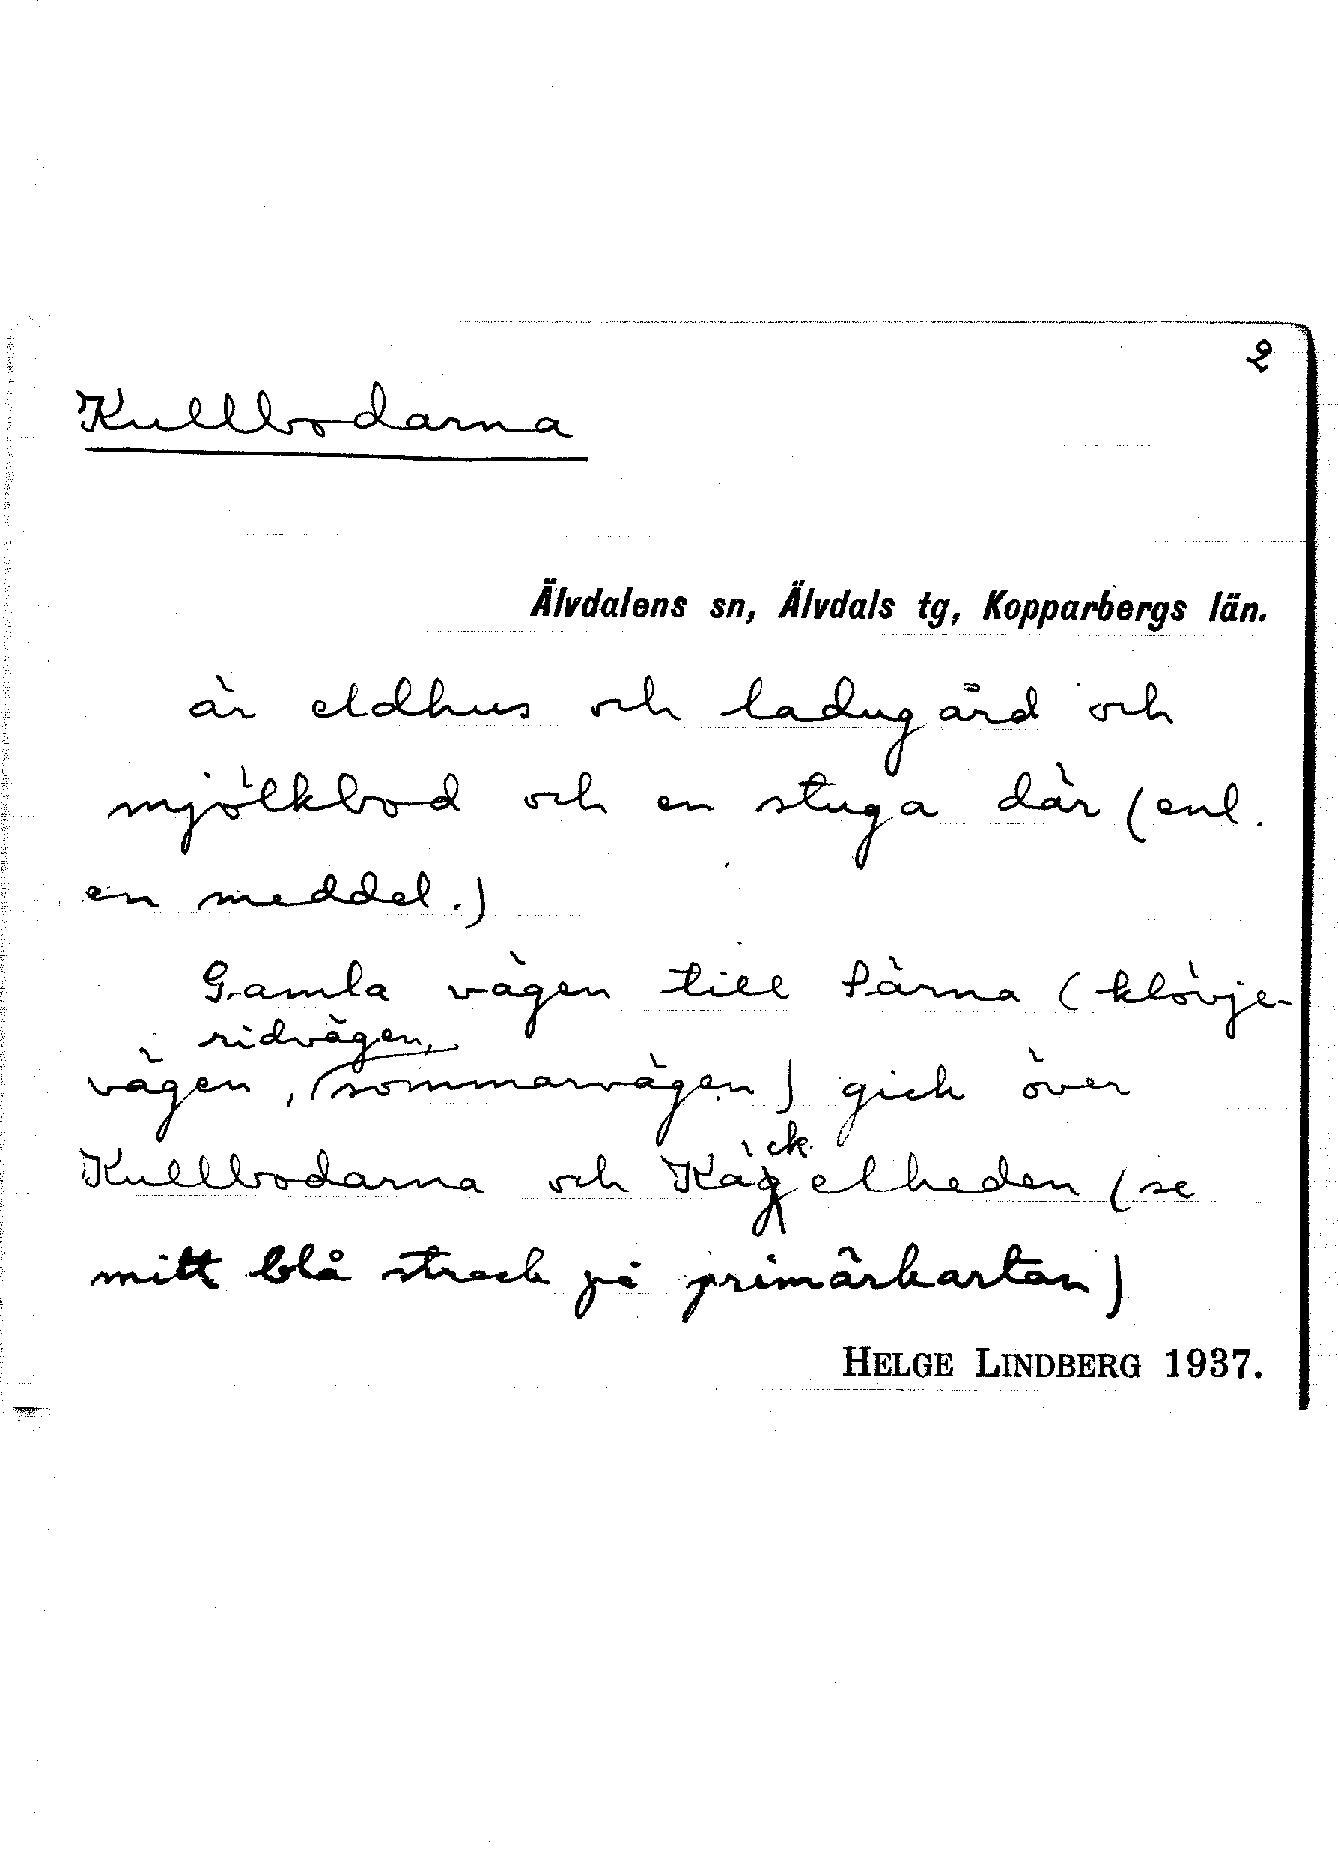 2
Kullbodarna
Älvdalens sn, Älvdals tg, Kopparbergs län.
är eldhus och ladugård och
mjölkbod och en stuga där (enl.
en meddel.)
Gamla vägen till Särna (klövje-
ridvägen,
vägen, sommarvägen) gick över
ck
Kullbodarna och Kägelheden (se
mitt blå streck på primärkartan)
HELGE LINDBERG 1937.